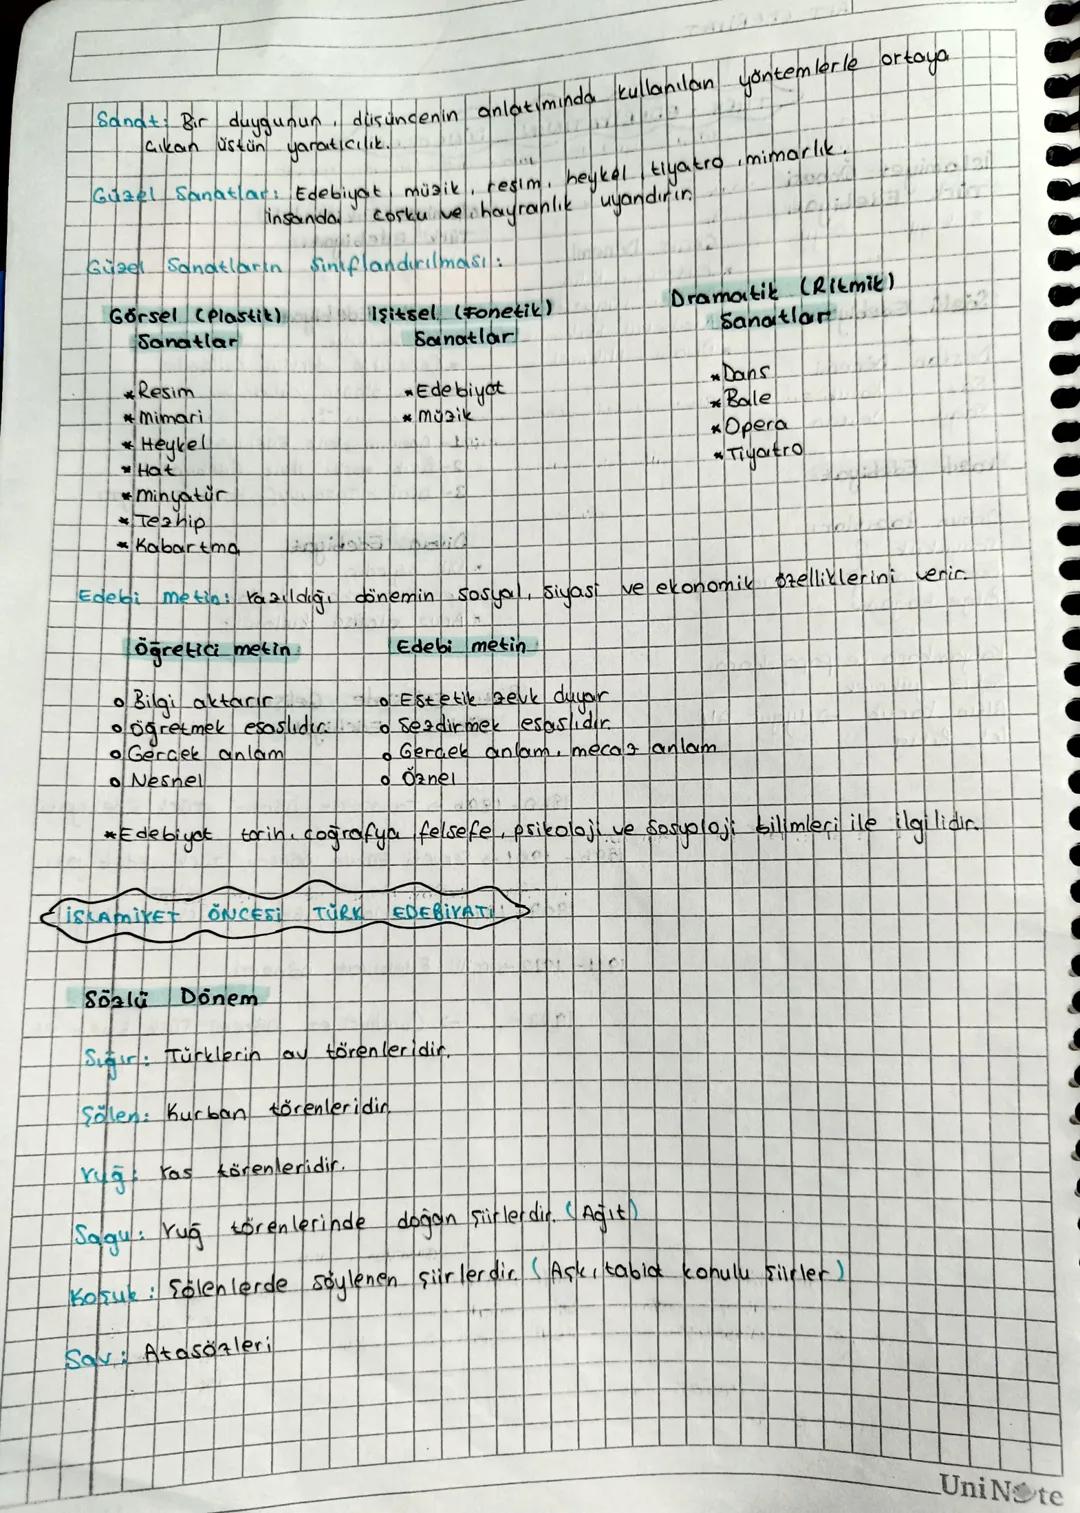 Sanat: Bir duygunun, düşüncenin anlatımında kullanılan yöntemlerle ortaya
çıkan üstün yaratıcılık.
Güzel Sanatlar: Edebiyat, müzik, resim, heykel, tiyatro, mimarlık.
insanda coşku ve hayranlık uyandırır.
Güzel Sanatların Sınıflandırılması:
Görsel (Plastik) Sanatlar
* Resim
* Mimari
* Heykel
* Hat
* Minyatür
* Tezhip
* Kabartma
İşitsel (Fonetik) Sanatlar
* Edebiyat
* müzik
Dramatik (Ritmik) Sanatlar
* Dans
* Bale
* Opera
* Tiyatro
Edebi metin: Yazıldığı dönemin sosyal, siyasi ve ekonomik özelliklerini verir.
Öğretici metin
o Bilgi aktarır
o öğretmek esaslıdır.
o Gerçek anlam
o Nesnel
Edebi metin
o Estetik zevk duyar
o Sezdirmek esaslıdır.
o Gerçek anlam, mecaz anlam
o Öznel
* Edebiyat tarih, coğrafya, felsefe, psikoloji ve sosyoloji bilimleri ile ilgilidir.
İSLAMİYET ÖNCESİ TÜRK EDEBİYATI
Sözlü Dönem
Sığır: Türklerin av törenleridir.
Şölen: Kurban törenleridir.
Yuğ: Yas törenleridir.
Sagu: Yuğ törenlerinde doğan şiirlerdir. (Ağıt)
Koşuk: Şölenlerde söylenen şiirlerdir. (Aşk, tabiat konulu şiirler)
Sav: Atasözleri
UniNote